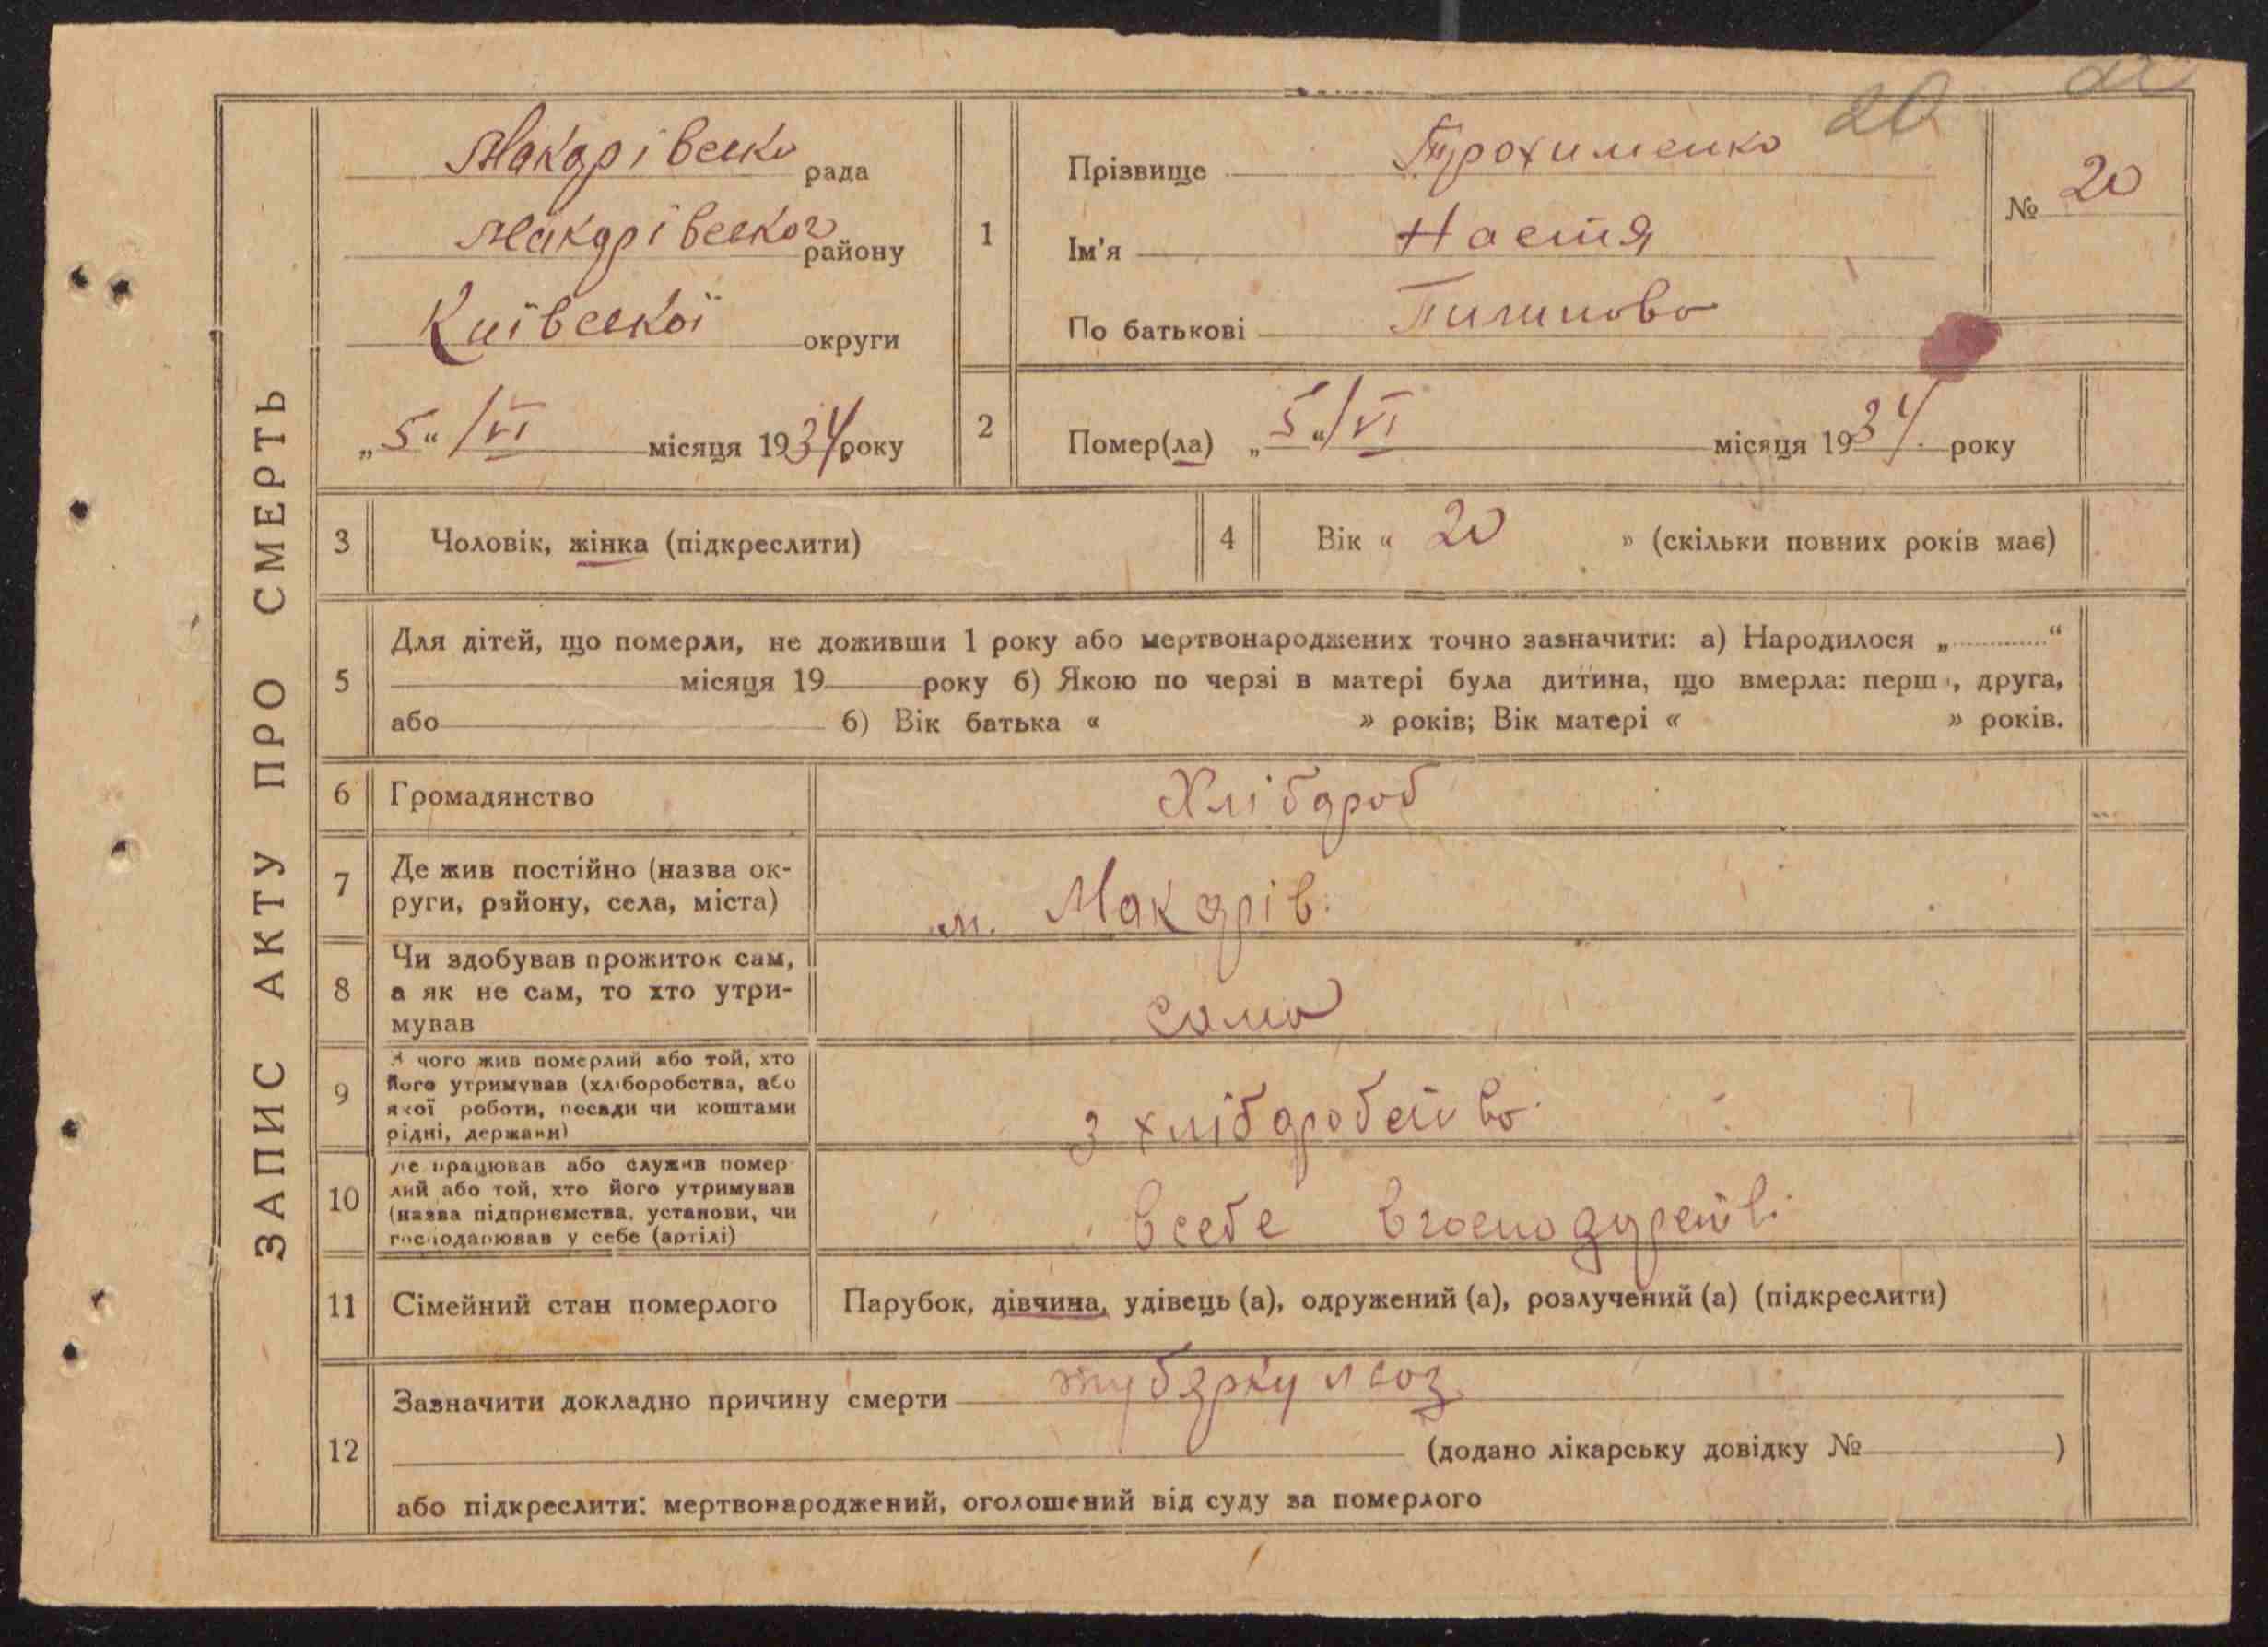 20
ЗАПИС АКТУ ПРО СМЕРТЬ
Макарівська рада
Макарівског району
Київської округи
„5“/VI місяця 1934 року
1
Прізвище Трохименко
Ім'я Настя
По батькові Пилипова
№ 20
2
Помер(ла) „5“/VI місяця 1934. року
3
Чоловік, жінка (підкреслити)
4
Вік « 20 » (скільки повних років має)
5
Для дітей, що померли, не доживши 1 року або мертвонароджених точно зазначити: а) Народилося „ “
місяця 19 року б) Якою по черзі в матері була дитина, що вмерла: перш , друга,
або б) Вік батька « » років; Вік матері « » років.
6
Громадянство
Хлібароб
7
Де жив постійно (назва ок-
руги, району, села, міста)
м. Макарів.
8
Чи здобував прожиток сам,
а як не сам, то хто утри-
мував
сама
9
З чого жив померлий або той, хто
його утримував (хліборобства, або
якої роботи, посади чи коштами
рідні, держави)
з хлібаробства
10
Де працював або служив помер-
лий або той, хто його утримував
(назва підприємства, установи, чи
господарював у себе (артілі)
в себе в господарстві
11
Сімейний стан померлого
Парубок, дівчина, удівець (а), одружений (а), розлучений (а) (підкреслити)
12
Зазначити докладно причину смерти тубяркульоз
(додано лікарську довідку № )
або підкреслити: мертвонароджений, оголошений від суду за померлого